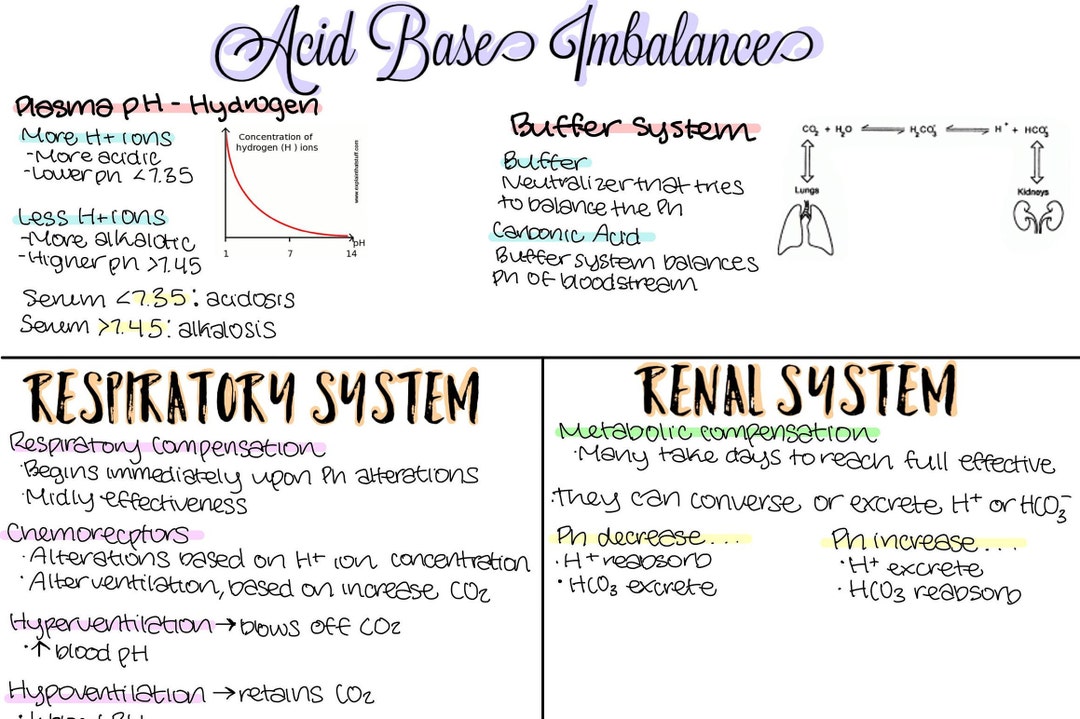 Acid Base Imbalance
Plasma pH - Hydrogen
More H+ ions
-More acidic
-Lower ph <7.35
Less H+ ions
-More alkalotic
-Higher ph >7.45
Serum <7.35: acidosis
Serum >7.45: alkalosis
Concentration of
hydrogen (H ) ions
www.explainthatstuff.com
pH
1 7 14
Buffer System
Buffer
Neutralizer that tries
to balance the Ph
Carbonic Acid
Buffer system balances
Ph of bloodstream
CO₂ + H₂O ⇌ H₂CO₃ ⇌ H⁺ + HCO₃⁻
Lungs
Kidneys
RESPIRATORY SYSTEM
Respiratory compensation
·Begins immediately upon Ph alterations
·Midly effectiveness
Chemorecptors
·Alterations based on H+ ion concentration
·Alter ventilation, based on increase CO₂
Hyperventilation → blows off CO₂
·↑ blood pH
Hypoventilation → retains CO₂
RENAL SYSTEM
Metabolic compensation
·Many take days to reach full effective
·They can converse or excrete H⁺ or HCO₃⁻
Ph decrease...
·H+ reabsorb
·HCO₃ excrete
Ph increase...
·H+ excrete
·HCO₃ reabsorb